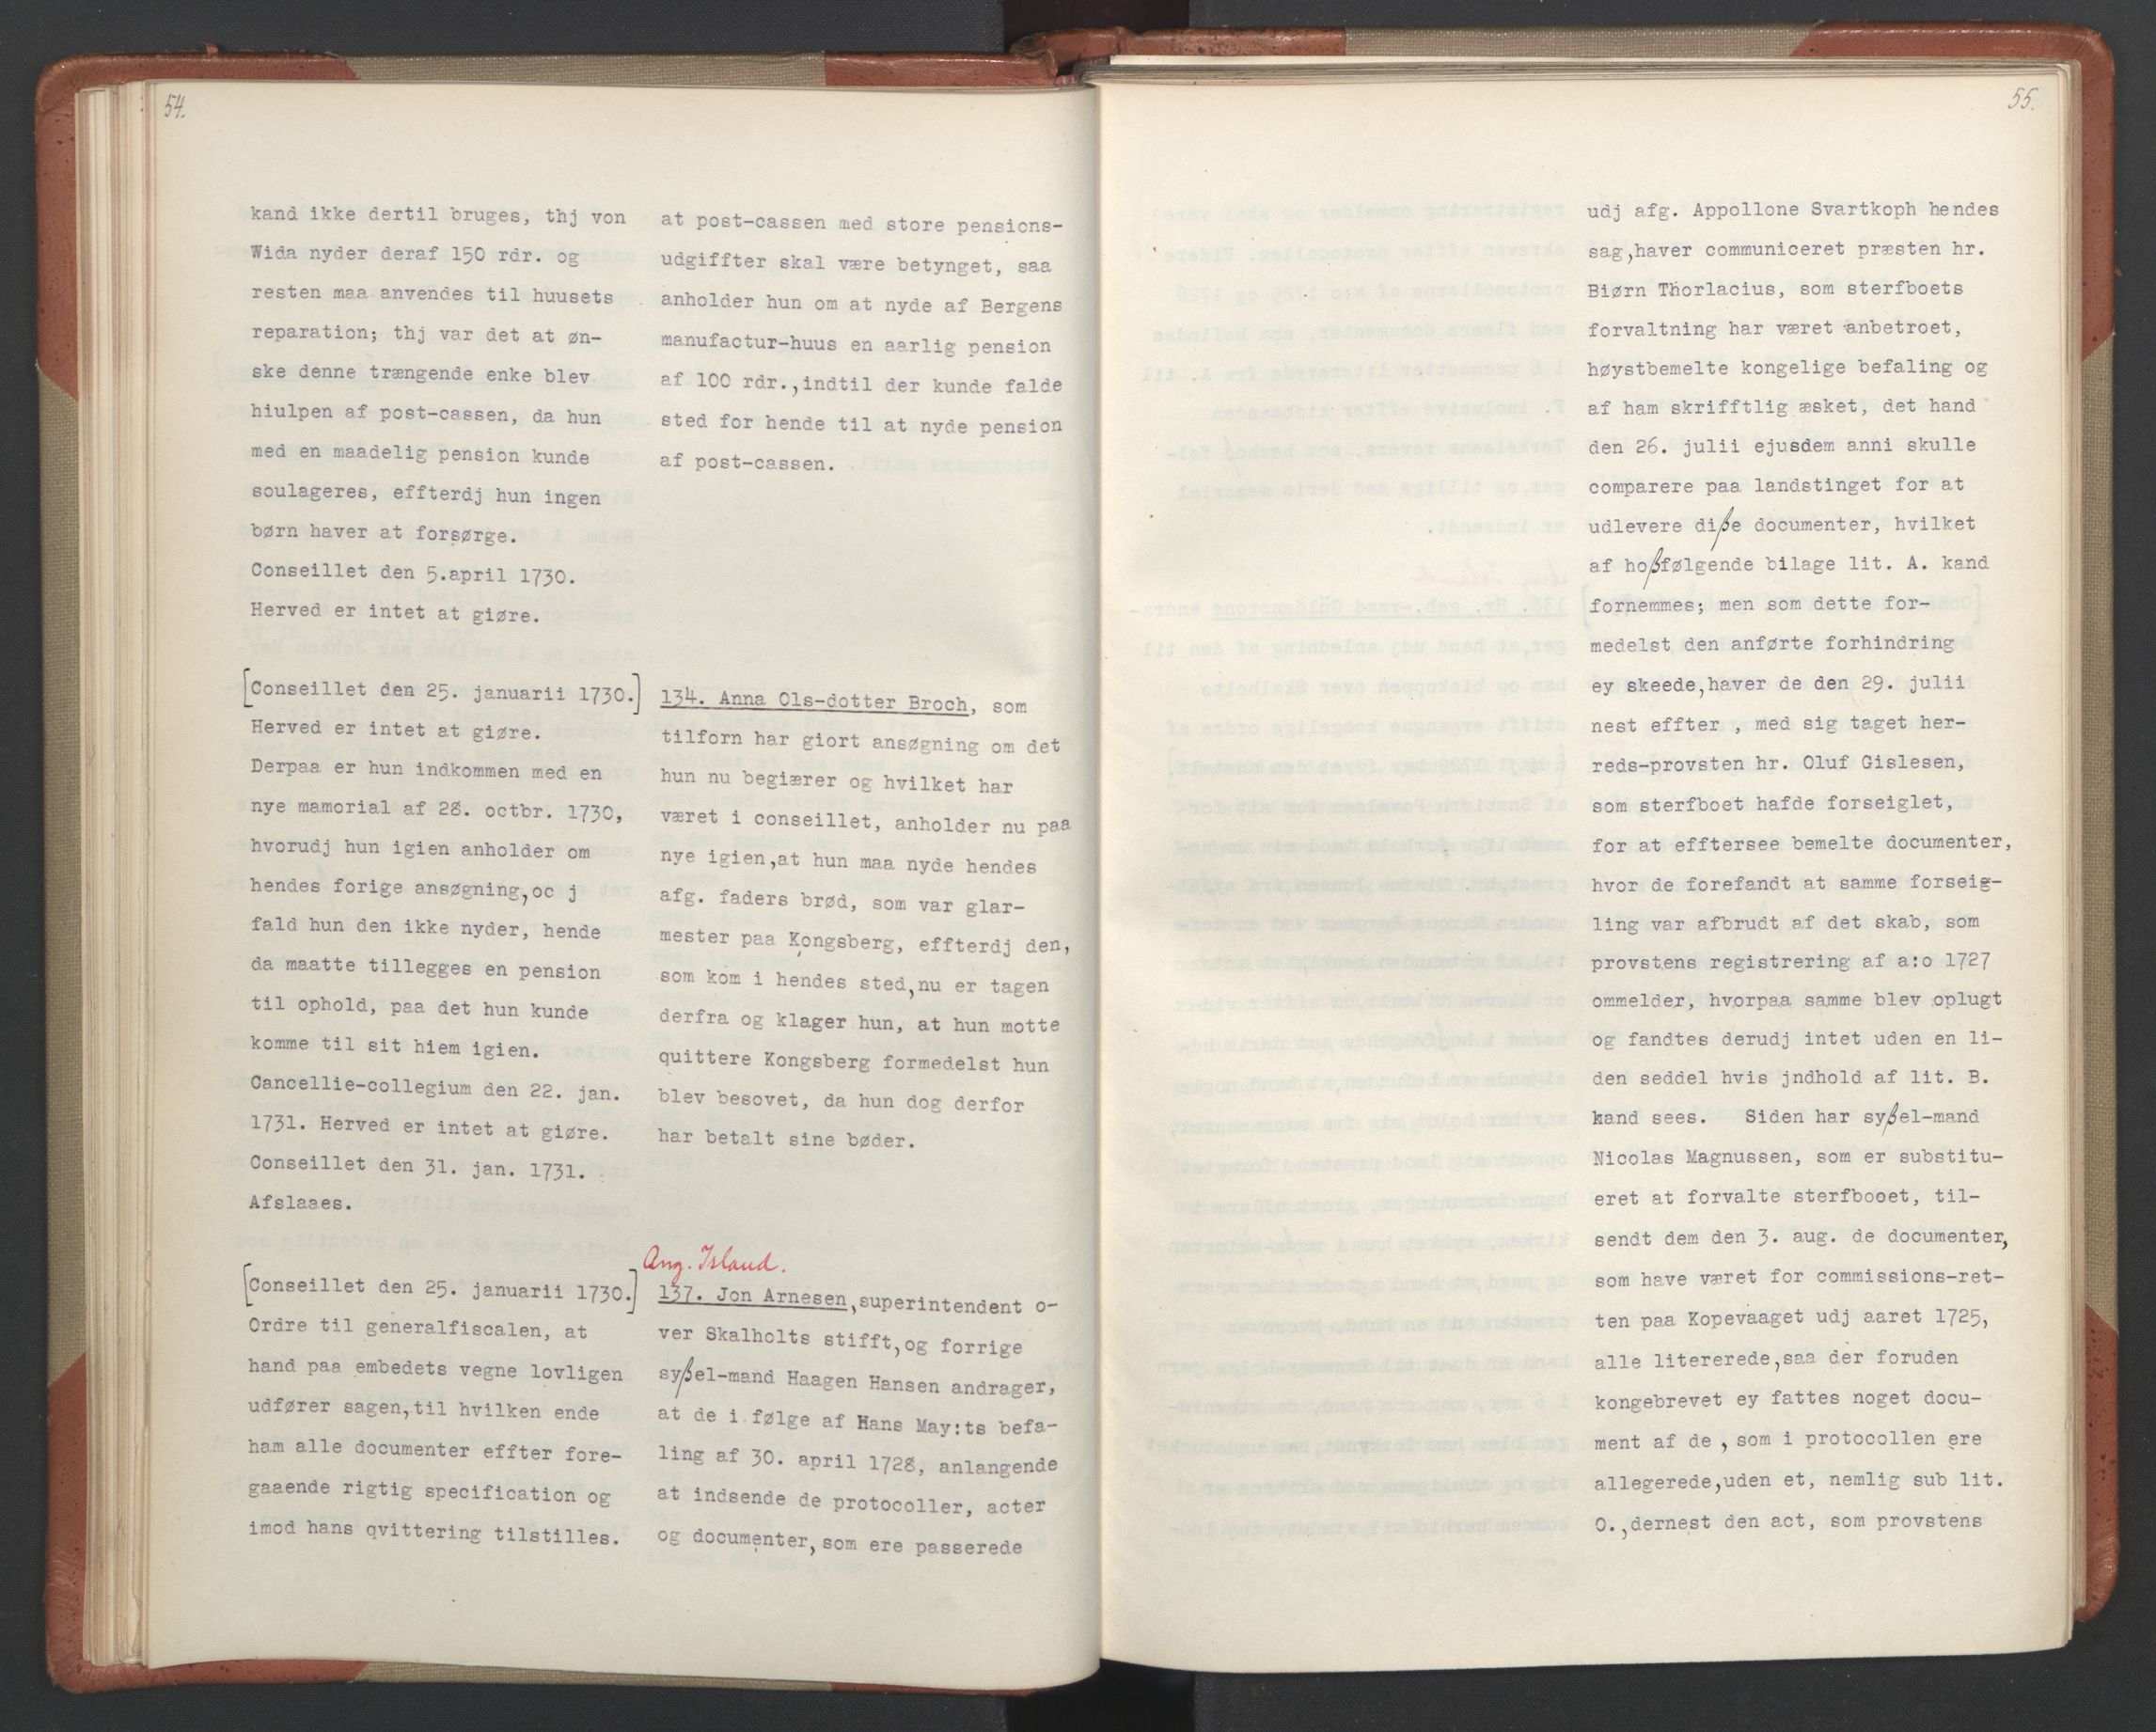 54.
kand ikke dertil bruges, thj von
Wida nyder deraf 150 rdr. og
resten maa anvendes til huusets
reparation; thj var det at øn-
ske denne trængende enke blev
hiulpen af post-cassen, da hun
med en maadelig pension kunde
soulageres, effterdj hun ingen
børn haver at forsørge.
Conseillet den 5.april 1730.
Herved er intet at giøre.
[Conseillet den 25. januarii 1730.]
Herved er intet at giøre.
Derpaa er hun indkommen med en
nye mamorial af 28. octbr. 1730,
hvorudj hun igien anholder om
hendes forige ansøgning,oc j
fald hun den ikke nyder, hende
da maatte tillegges en pension
til ophold, paa det hun kunde
komme til sit hiem igien.
Cancellie-collegium den 22. jan.
1731. Herved er intet at giøre.
Conseillet den 31. jan. 1731.
Afslaaes.
[Conseillet den 25. januarii 1730.]
Ordre til generalfiscalen, at
hand paa embedets vegne lovligen
udfører sagen,til hvilken ende
ham alle documenter effter fore-
gaaende rigtig specification og
imod hans qvittering tilstilles.
at post-cassen med store pensions-
udgiffter skal være betynget, saa
anholder hun om at nyde af Bergens
manufactur-huus en aarlig pension
af 100 rdr.,indtil der kunde falde
sted for hende til at nyde pension
af post-cassen.
134. Anna Ols-dotter Broch, som
tilforn har giort ansøgning om det
hun nu begiærer og hvilket har
været i conseillet, anholder nu paa
nye igien,at hun maa nyde hendes
afg. faders brød, som var glar-
mester paa Kongsberg, effterdj den,
som kom i hendes sted,nu er tagen
derfra og klager hun, at hun motte
quittere Kongsberg formedelst hun
blev besovet, da hun dog derfor
har betalt sine bøder.
Ang. Island.
137. Jon Arnesen,superintendent o-
ver Skalholts stifft,og forrige
syßel-mand Haagen Hansen andrager,
at de i følge af Hans May:ts befa-
ling af 30. april 1728, anlangende
at indsende de protocoller, acter
og documenter,som ere passerede
55.
udj afg. Appollone Svartkoph hendes
sag,haver communiceret præsten hr.
Biørn Thorlacius, som sterfboets
forvaltning har været anbetroet,
høystbemelte kongelige befaling og
af ham skrifftlig æsket, det hand
den 26. julii ejusdem anni skulle
comparere paa landstinget for at
udlevere diße documenter, hvilket
af hoßfølgende bilage lit. A. kand
fornemmes; men som dette for-
medelst den anførte forhindring
ey skeede,haver de den 29. julii
nest effter , med sig taget her-
reds-provsten hr. Oluf Gislesen,
som sterfboet hafde forseiglet,
for at efftersee bemelte documenter,
hvor de forefandt at samme forseig-
ling var afbrudt af det skab, som
provstens registrering af a:o 1727
ommelder, hvorpaa samme blev oplugt
og fandtes derudj intet uden en li-
den seddel hvis jndhold af lit. B.
kand sees. Siden har syßel-mand
Nicolas Magnussen, som er substitu-
eret at forvalte sterfbooet, til-
sendt dem den 3. aug. de documenter,
som have været for commissions-ret-
ten paa Kopevaaget udj aaret 1725,
alle litererede,saa der foruden
kongebrevet ey fattes noget docu-
ment af de , som i protocollen ere
allegerede,uden et, nemlig sub lit.
O.,dernest den act, som provstens